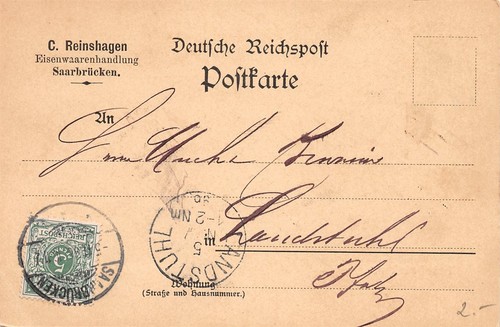 C. Reinshagen
Eisenwaarenhandlung
Saarbrücken.
Deutsche Reichspost
Postkarte
An
in Landstuhl
Pfalz
Wohnung
(Straße und Hausnummer.)
LANDSTUHL
5
1-2 Nm
REICHSPOST
5
SAARBRÜCKEN
2.-